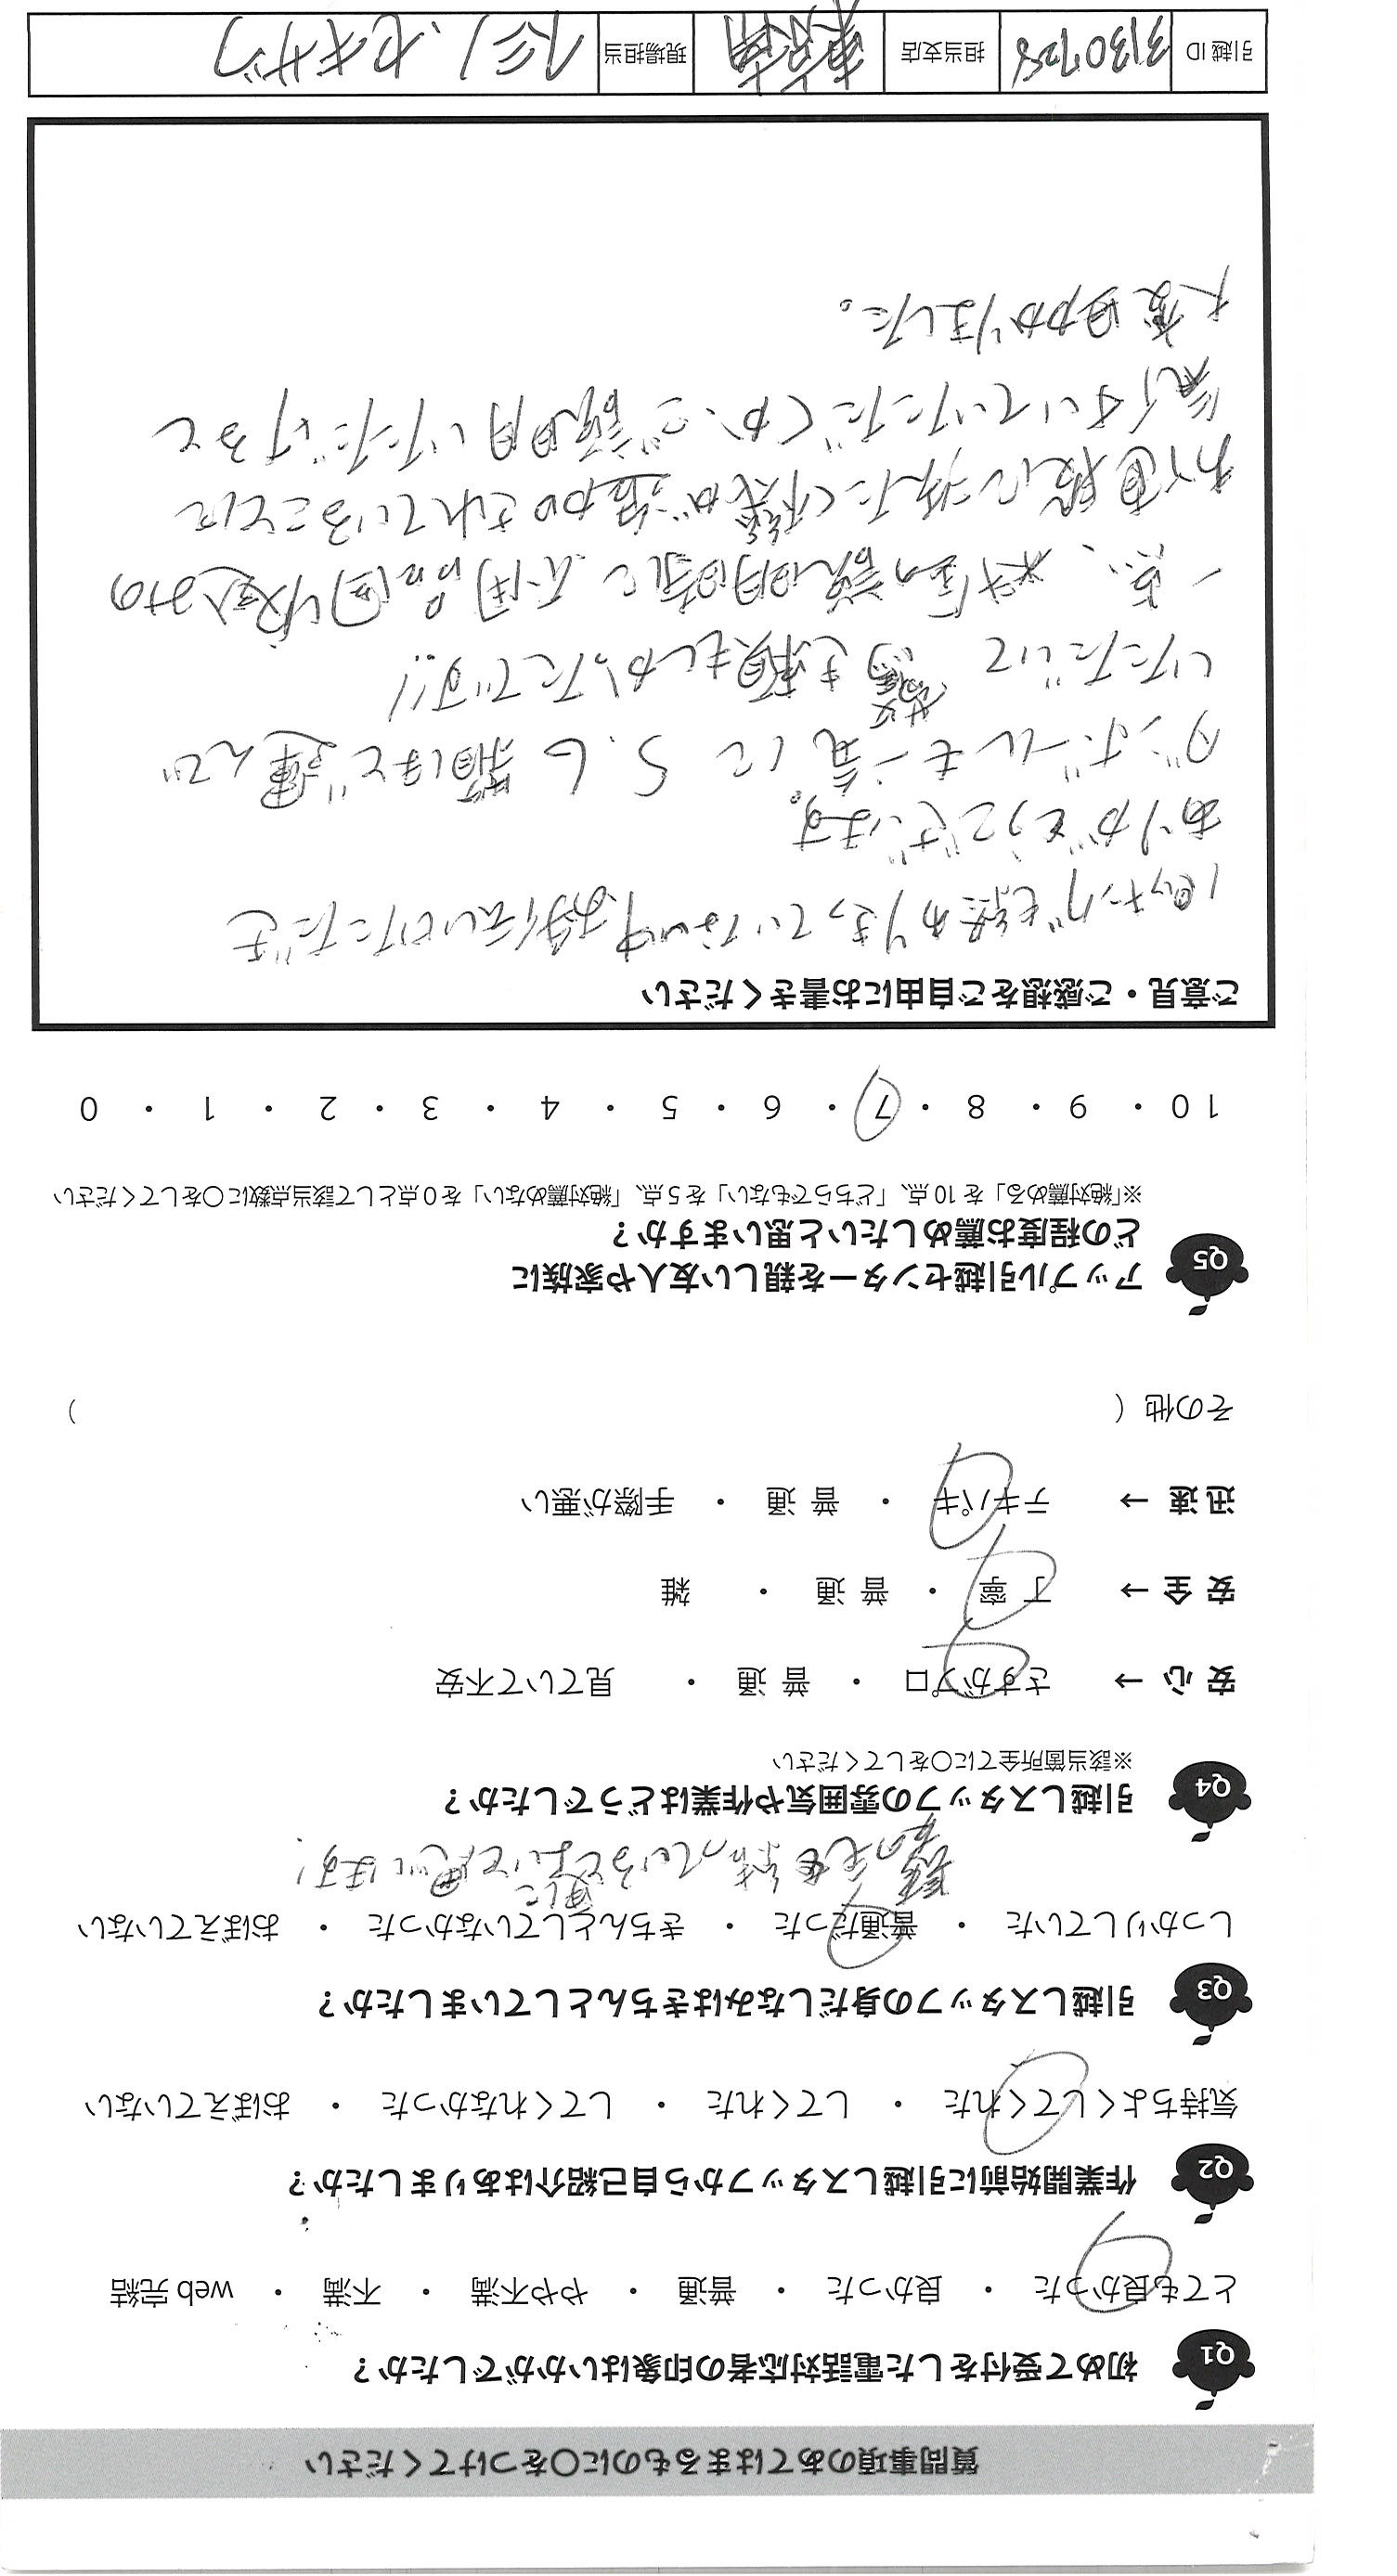 質問事項のあてはまるものに〇をつけてください
Q1 初めて受付をした電話対応者の印象はいかがでしたか？
とても良かった ・ 良かった ・ 普通 ・ やや不満 ・ 不満 ・ web 完結
Q2 作業開始前に引越しスタッフから自己紹介はありましたか？
気持ちよくしてくれた ・ してくれた ・ してくれなかった ・ おぼえていない
Q3 引越しスタッフの身だしなみはきちんとしていましたか？
しっかりしていた ・ 普通だった ・ きちんとしていなかった ・ おぼえていない
髪の毛を結っていると更によいと思います!
Q4 引越しスタッフの雰囲気や作業はどうでしたか？
※該当箇所全てに〇をしてください
安 心 → さすがプロ ・ 普 通 ・ 見ていて不安
安 全 → 丁 寧 ・ 普 通 ・ 雑
迅 速 → テキパキ ・ 普 通 ・ 手際が悪い
その他（ ）
Q5 アップル引越センターを親しい友人や家族に
どの程度お薦めしたいと思いますか？
※「絶対薦める」を 10 点、「どちらでもない」を 5 点、「絶対薦めない」を 0 点として該当点数に〇をしてください
10 ・ 9 ・ 8 ・ 7 ・ 6 ・ 5 ・ 4 ・ 3 ・ 2 ・ 1 ・ 0
ご意見・ご感想をご自由にお書きください
パッキングも終わりきっていない中お手伝いいただき
ありがとうございます。
ダンボールも一気に 5、6 箱ほど運んで
いただいて 驚き頼もしかったです!!
一点、料金の説明時に不用品回収込みの
値段に挟た様が追加されていることに
気付いていただくか、ご説明いただけると
大変助かりました。
引越 ID 3130725 担当支店 東京南 現場担当 セキザワ